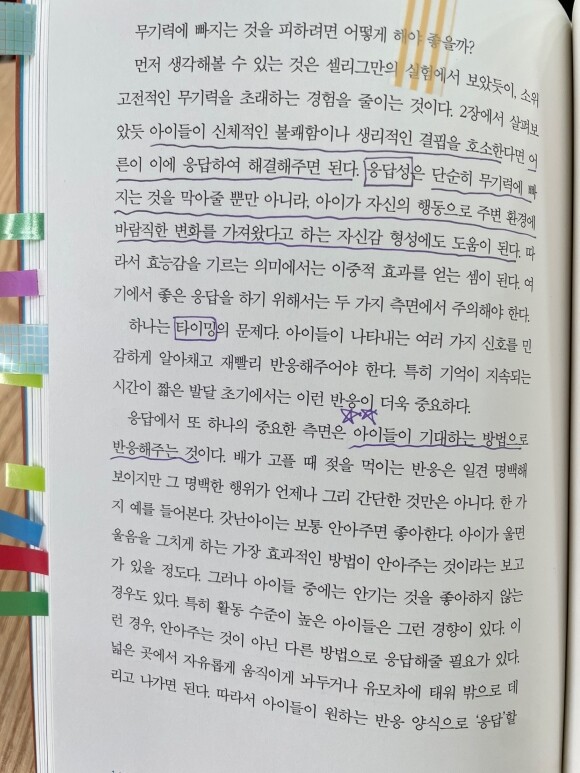 무기력에 빠지는 것을 피하려면 어떻게 해야 좋을까?
먼저 생각해볼 수 있는 것은 셀리그만의 실험에서 보았듯이, 소위
고전적인 무기력을 초래하는 경험을 줄이는 것이다. 2장에서 살펴보
았듯 아이들이 신체적인 불쾌함이나 생리적인 결핍을 호소한다면 어
른이 이에 응답하여 해결해주면 된다. 응답성은 단순히 무기력에 빠
지는 것을 막아줄 뿐만 아니라, 아이가 자신의 행동으로 주변 환경에
바람직한 변화를 가져왔다고 하는 자신감 형성에도 도움이 된다. 따
라서 효능감을 기르는 의미에서는 이중적 효과를 얻는 셈이 된다. 여
기에서 좋은 응답을 하기 위해서는 두 가지 측면에서 주의해야 한다.
하나는 타이밍의 문제다. 아이들이 나타내는 여러 가지 신호를 민
감하게 알아채고 재빨리 반응해주어야 한다. 특히 기억이 지속되는
시간이 짧은 발달 초기에서는 이런 반응이 더욱 중요하다.
응답에서 또 하나의 중요한 측면은 아이들이 기대하는 방법으로
반응해주는 것이다. 배가 고플 때 젖을 먹이는 반응은 일견 명백해
보이지만 그 명백한 행위가 언제나 그리 간단한 것만은 아니다. 한 가
지 예를 들어본다. 갓난아이는 보통 안아주면 좋아한다. 아이가 울면
울음을 그치게 하는 가장 효과적인 방법이 안아주는 것이라는 보고
가 있을 정도다. 그러나 아이들 중에는 안기는 것을 좋아하지 않는
경우도 있다. 특히 활동 수준이 높은 아이들은 그런 경향이 있다. 이
런 경우, 안아주는 것이 아닌 다른 방법으로 응답해줄 필요가 있다.
넓은 곳에서 자유롭게 움직이게 놔두거나 유모차에 태워 밖으로 데
리고 나가면 된다. 따라서 아이들이 원하는 반응 양식으로 '응답'할